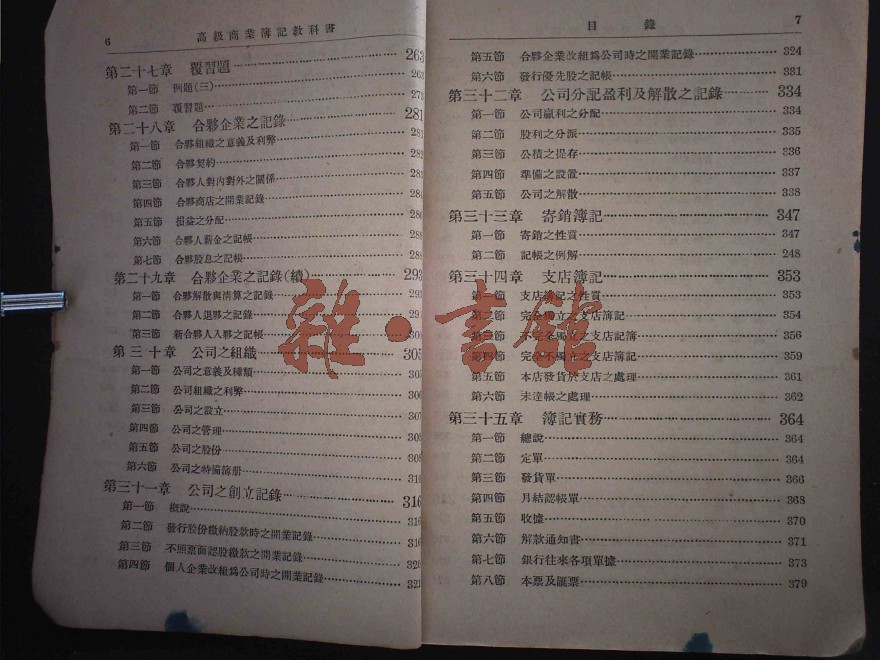 6 高級商業簿記教科書
第二十七章 覆習題 263
第一節 例題(三) 263
第二節 覆習題
第二十八章 合夥企業之記錄 281
第一節 合夥組織之意義及利弊 281
第二節 合夥契約
第三節 合夥人對內對外之關係
第四節 合夥商店之開業記錄
第五節 損益之分配
第六節 合夥人薪金之記帳
第七節 合夥股息之記帳
第二十九章 合夥企業之記錄(續) 293
第一節 合夥解散與清算之記錄
第二節 合夥人退夥之記錄
第三節 新合夥人入夥之記帳
第三十章 公司之組織 305
第一節 公司之意義及種類 305
第二節 公司組織之利弊
第三節 公司之設立 307
第四節 公司之管理
第五節 公司之股份
第六節 公司之特備簿册
第三十一章 公司之創立記錄 316
第一節 概說 316
第二節 發行股份繳納股款時之開業記錄 316
第三節 不照票面認股繳款之開業記錄 320
第四節 個人企業改組爲公司時之開業記錄 321
目錄 7
第五節 合夥企業改組爲公司時之開業記錄 324
第六節 發行優先股之記帳 331
第三十二章 公司分配盈利及解散之記錄 334
第一節 公司贏利之分配 334
第二節 股利之分派 335
第三節 公積之提存 336
第四節 準備之設置 337
第五節 公司之解散 338
第三十三章 寄銷簿記 347
第一節 寄銷之性質 347
第二節 記帳之例解 248
第三十四章 支店簿記 353
第一節 支店簿記之性質 353
第二節 完全獨立之支店簿記 354
第三節 不完全獨立之支店記簿 356
第四節 完全不獨立之支店簿記 359
第五節 本店發貨於支店之處理 361
第六節 未達帳之處理 362
第三十五章 簿記實務 364
第一節 總說 364
第二節 定單 364
第三節 發貨單 366
第四節 月結認帳單 368
第五節 收據 370
第六節 解款通知書 371
第七節 銀行往來各項單據 373
第八節 本票及匯票 379
雜·書館